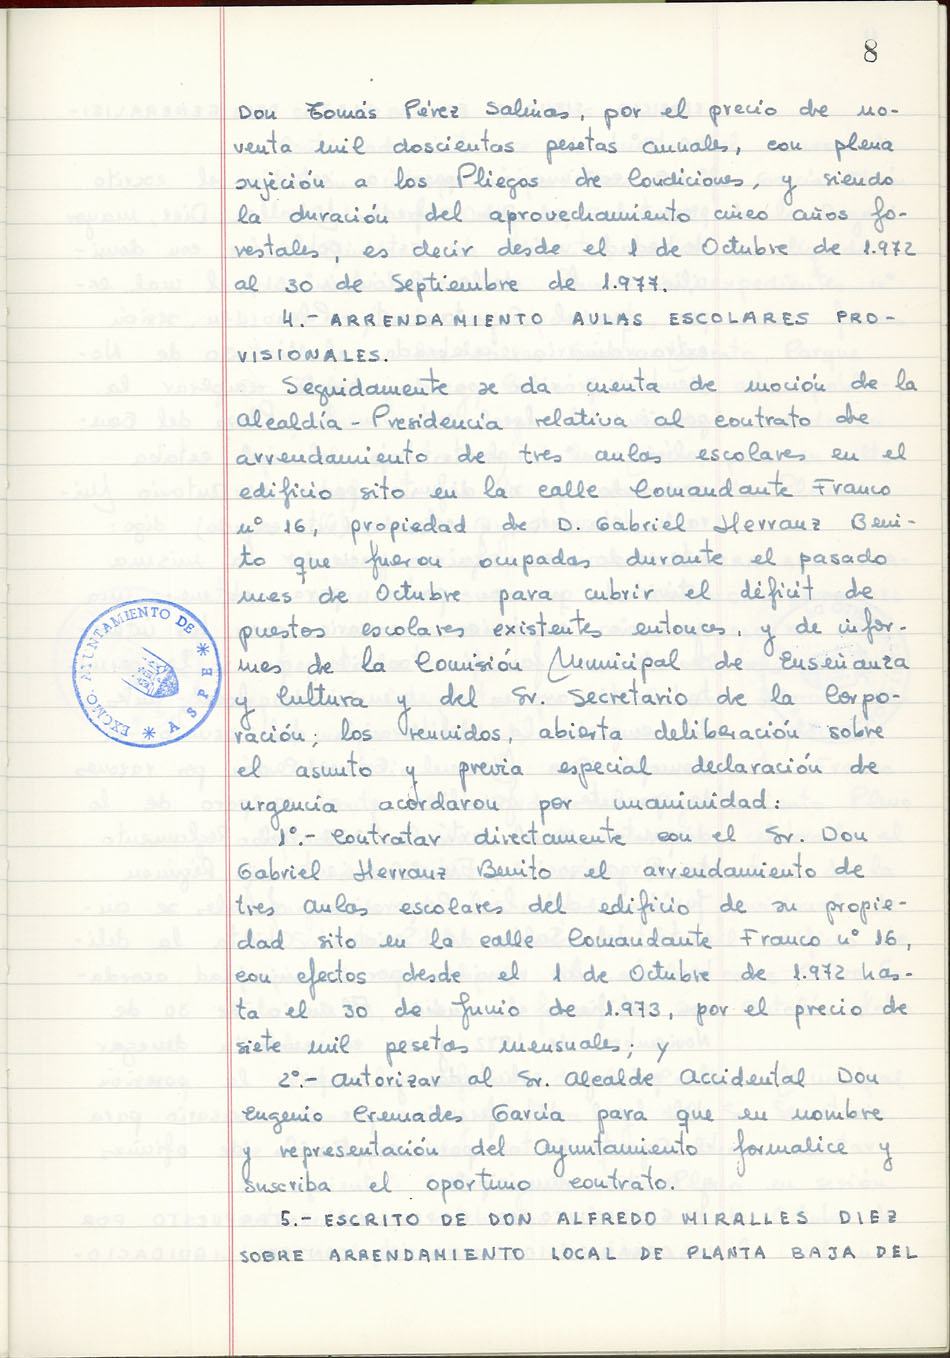 8
Don Tomás Pérez Salinas, por el precio de no-
venta mil doscientas pesetas anuales, con plena
sujeción a los Pliegos de Condiciones, y siendo
la duración del aprovechamiento cinco años fo-
restales, es decir desde el 1 de Octubre de 1.972
al 30 de Septiembre de 1.977.
4.- ARRENDAMIENTO AULAS ESCOLARES PRO-
VISIONALES.
Seguidamente se da cuenta de moción de la
Alcaldía-Presidencia relativa al contrato de
arrendamiento de tres aulas escolares en el
edificio sito en la calle Comandante Franco
nº 16, propiedad de D. Gabriel Herranz Beni-
to que fueron ocupadas durante el pasado
mes de Octubre para cubrir el déficit de
puestos escolares existentes entonces, y de infor-
mes de la Comisión Municipal de Enseñanza
y Cultura y del Sr. Secretario de la Corpo-
ración; los reunidos, abierta deliberación sobre
el asunto y previa especial declaración de
urgencia acordaron por unanimidad:
1º.- Contratar directamente con el Sr. Don
Gabriel Herranz Benito el arrendamiento de
tres aulas escolares del edificio de su propie-
dad sito en la calle Comandante Franco nº 16,
con efectos desde el 1 de Octubre de 1.972 has-
ta el 30 de Junio de 1.973, por el precio de
siete mil pesetas mensuales; y
2º.- Autorizar al Sr. Alcalde Accidental Don
Eugenio Cremades García para que en nombre
y representación del Ayuntamiento formalice y
suscriba el oportuno contrato.
5.- ESCRITO DE DON ALFREDO MIRALLES DIEZ
SOBRE ARRENDAMIENTO LOCAL DE PLANTA BAJA DEL
EXCMO. AYUNTAMIENTO DE * ASPE *